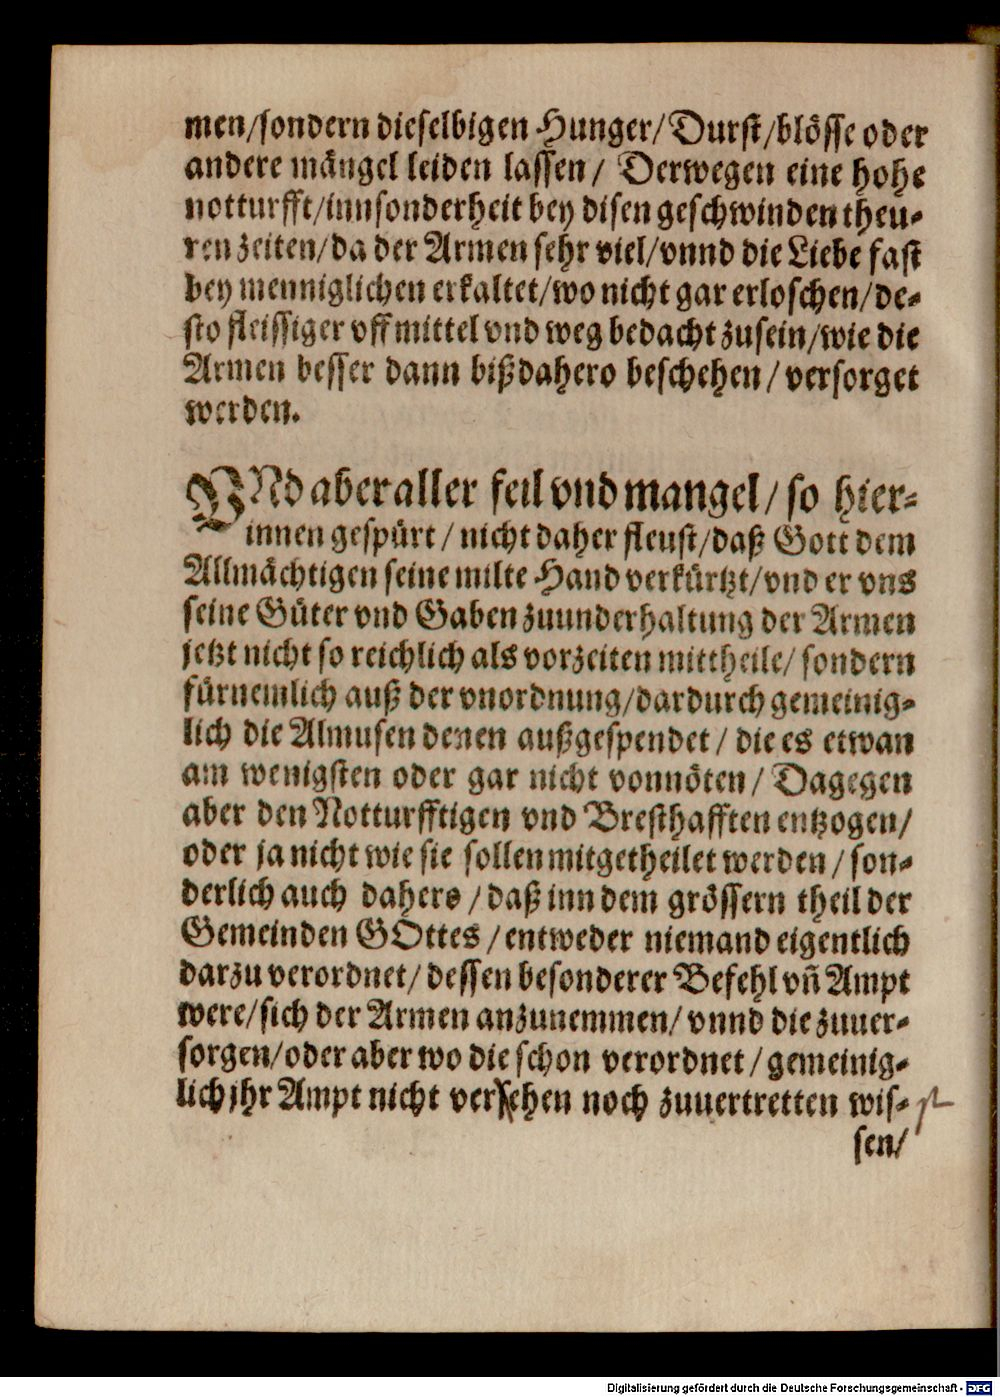 men/sondern dieselbigen Hunger/Durst/blösse oder
andere mängel leiden lassen/ Derwegen eine hohe
notturfft/innsonderheit bey disen geschwinden theu-
ren zeiten/da der Armen sehr viel/vnnd die Liebe fast
bey menniglichen erkaltet/wo nicht gar erloschen/de-
sto fleissiger vff mittel vnd weg bedacht zusein/wie die
Armen besser dann bißdahero beschehen/versorget
werden.
VNd aber aller feil vnd mangel/so hier-
innen gespürt/nicht daher fleust/daß Gott dem
Allmächtigen seine milte Hand verkürtzt/vnd er vns
seine Güter vnd Gaben zuunderhaltung der Armen
jetzt nicht so reichlich als vorzeiten mittheile/sondern
fürnemlich auß der vnordnung/dardurch gemeinig-
lich die Almusen denen außgespendet/die es etwan
am wenigsten oder gar nicht vonnöten/ Dagegen
aber den Notturfftigen vnd Bresthafften entzogen/
oder ja nicht wie sie sollen mitgetheilet werden/son-
derlich auch dahero/daß inn dem grössern theil der
Gemeinden GOttes/entweder niemand eigentlich
darzu verordnet/dessen besonderer Befehl vñ Ampt
were/sich der Armen anzunemmen/vnnd die zuuer-
sorgen/oder aber wo die schon verordnet/gemeinig-
lich jhr Ampt nicht versehen noch zuuertretten wis-
sen/
Digitalisierung gefördert durch die Deutsche Forschungsgemeinschaft - DFG